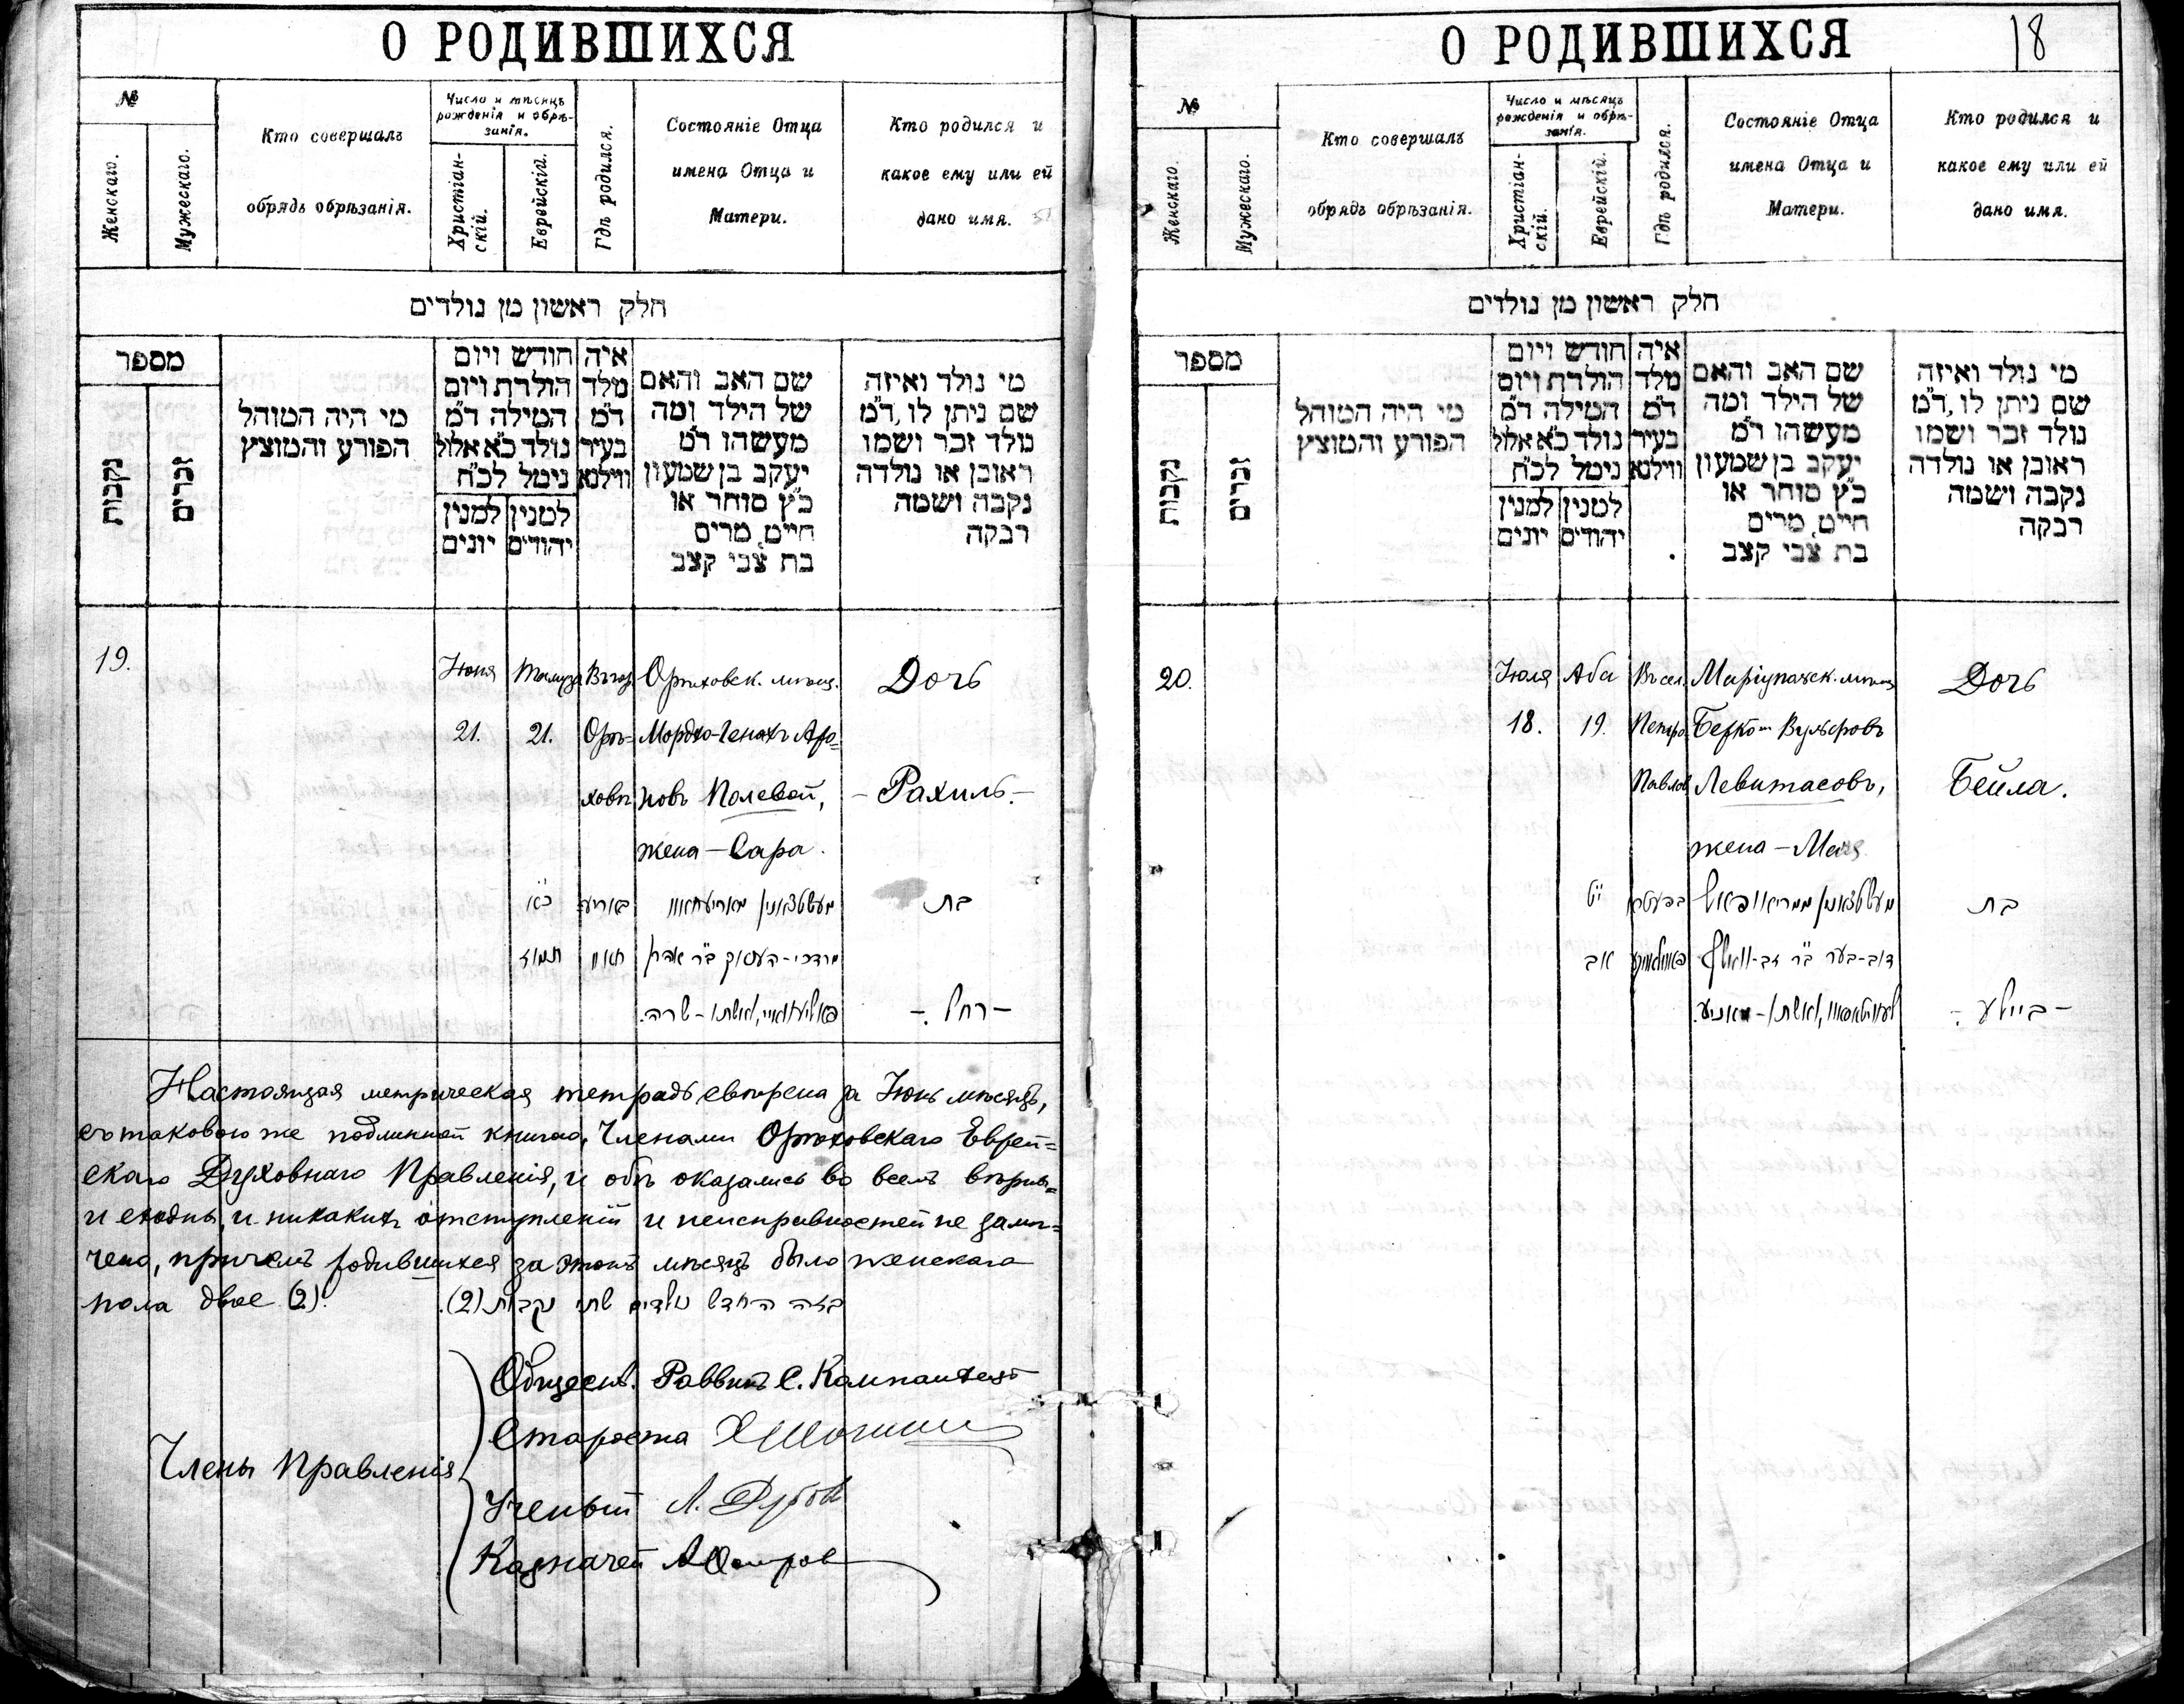 О РОДИВШИХСЯ
№
Женскаго.
Мужескаго.
Кто совершалъ
обрядъ обрѣзанія.
Число и мѣсяцъ
рожденія и обрѣ-
занія.
Христіан-
скій.
Еврейскій.
Гдѣ родился.
Состояніе Отца
имена Отца и
Матери.
Кто родился и
какое ему или ей
дано имя.
חלק ראשון מן נולדים
מספר
נקבות
זכרים
מי היה המוהל
הפורע והמוצץ
חודש ויום
הולדת ויום
המילה ד״מ
נולד כ״א אלול
נימל לכ״ח
למנין יהודים
למנין יונים
איה
מלד
ד״מ
בעיר
ווילנא
שם האב והאם
של הילד ומה
מעשהו ד״מ
יעקב בן שמעון
כ״ץ סוחר או
חייט, מרים
בת צבי קצב
מי נולד ואיזה
שם ניתן לו, ד״מ
נולד זכר ושמו
ראובן או נולדה
נקבה ושמה
רבקה
19. Іюня Тамуза Въ гор. Орѣховск. мѣщ. Дочь
21. 21. Орѣ- Мордко-Генохъ Аро=
ховѣ новъ Полевой, - Рахиль. -
жена - Сара.
כ״א בת
תמוז מרדכי - העניך ב״ר אהרן
ואשתו - שרה. - רחל. -
Настоящая метрическая тетрадь свѣрена за Іюнь мѣсяцъ,
съ таковою же подлинной книгою, Членами Орѣховскаго Еврей=
скаго Духовнаго Правленія, и обѣ оказались во всемъ вѣрны=
и сходны, и никакихъ отступленій и неисправностей не замѣ=
чено, причемъ родившихся за этотъ мѣсяцъ было женскаго
пола двое (2).
בזה החדש נולדים שתי נקבות (2).
Члены Правленія
Обществ. Раввинъ С. Кампанѣецъ
Староста
Ученый Л.
Казначей
О РОДИВШИХСЯ
18
№
Женскаго.
Мужескаго.
Кто совершалъ
обрядъ обрѣзанія.
Число и мѣсяцъ
рожденія и обрѣ-
занія.
Христіан-
скій.
Еврейскій.
Гдѣ родился.
Состояніе Отца
имена Отца и
Матери.
Кто родился и
какое ему или ей
дано имя.
חלק ראשון מן נולדים
מספר
נקבות
זכרים
מי היה המוהל
הפורע והמוצץ
חודש ויום
הולדת ויום
המילה ד״מ
נולד כ״א אלול
נימל לכ״ח
למנין יהודים
למנין יונים
איה
מלד
ד״מ
בעיר
ווילנא
שם האב והאם
של הילד ומה
מעשהו ד״מ
יעקב בן שמעון
כ״ץ סוחר או
חייט, מרים
בת צבי קצב
מי נולד ואיזה
שם ניתן לו, ד״מ
נולד זכר ושמו
ראובן או נולדה
נקבה ושמה
רבקה
20. Іюля Аба Въ сел. Маріупольск. мѣщ. Дочь
18. 19. Петро Берко Вульфовъ
Павлов Левитасовъ, Бейла.
жена -
י״ט בת
אב דוב-בער ב״ר זב-וואלף
ואשתו - מאניע. - ביילע. -